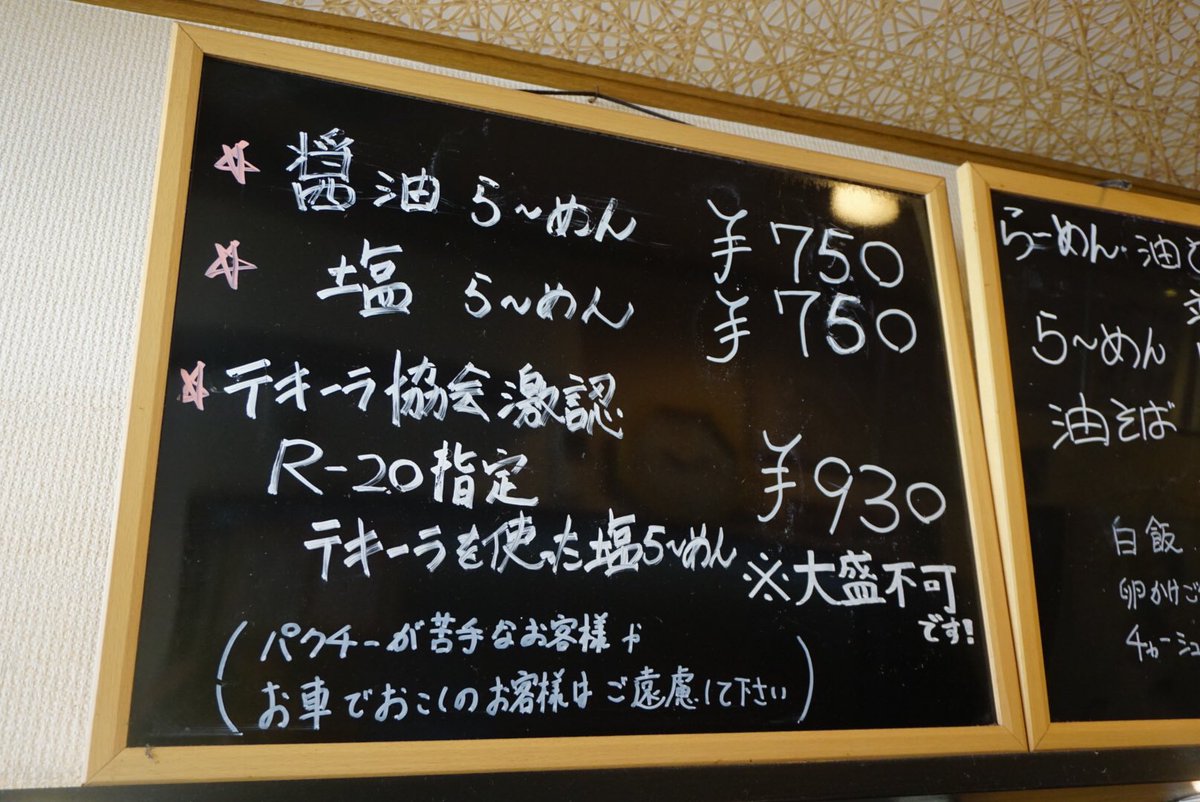 ☆ 醤油ら〜めん ¥750
☆ 塩ら〜めん ¥750
☆ テキーラ協会激認
R-20指定 ¥930
テキーラを使った塩ら〜めん
※大盛不可
です!
(パクチーが苦手なお客様や
お車でおこしのお客様はご遠慮して下さい)
らーめん・油そ
ら〜めん
油そば
白飯
卵かけご
チャーシュ